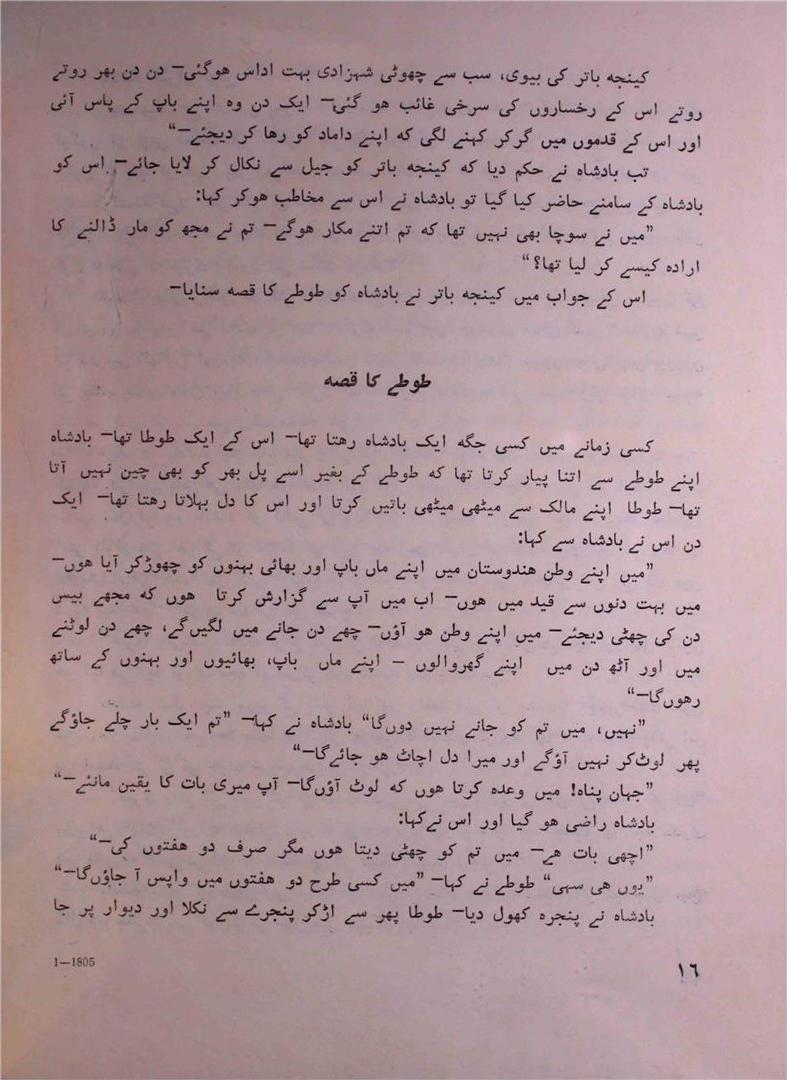 کینجه باتر کی بیوی، سب سے چھوٹی شہزادی بہت اداس ھوگئی— دن دن بھر روتے
روتے اس کے رخساروں کی سرخی غائب ھو گئی— ایک دن وہ اپنے باپ کے پاس آئی
اور اس کے قدموں میں گرکر کہنے لگی که اپنے داماد کو رھا کر دیجئے—“
تب بادشاہ نے حکم دیا که کینجه باتر کو جیل سے نکال کر لایا جائے— اس کو
بادشاہ کے سامنے حاضر کیا گیا تو بادشاہ نے اس سے مخاطب ھوکر کہا:
”میں نے سوچا بھی نہیں تھا که تم اتنے مکار ھوگے— تم نے مجھ کو مار ڈالنے کا
ارادہ کیسے کر لیا تھا؟“
اس کے جواب میں کینجه باتر نے بادشاہ کو طوطے کا قصه سنایا—
طوطے کا قصه
کسی زمانے میں کسی جگه ایک بادشاہ رھتا تھا— اس کے ایک طوطا تھا— بادشاہ
اپنے طوطے سے اتنا پیار کرتا تھا که طوطے کے بغیر اسے پل بھر کو بھی چین نہیں آتا
تھا— طوطا اپنے مالک سے میٹھی میٹھی باتیں کرتا اور اس کا دل بہلاتا رھتا تھا— ایک
دن اس نے بادشاہ سے کہا:
”میں اپنے وطن ھندوستان میں اپنے ماں باپ اور بھائی بہنوں کو چھوڑکر آیا ھوں—
میں بہت دنوں سے قید میں ھوں— اب میں آپ سے گزارش کرتا ھوں که مجھے بیس
دن کی چھٹی دیجئے— میں اپنے وطن ھو آؤں— چھے دن جانے میں لگیں‌گے، چھے دن لوٹنے
میں اور آٹھ دن میں اپنے گھروالوں — اپنے ماں باپ، بھائیوں اور بہنوں کے ساتھ
رھوں‌گا—“
”نہیں، میں تم کو جانے نہیں دوں‌گا“ بادشاہ نے کہا— ”تم ایک بار چلے جاؤگے
پھر لوٹ‌کر نہیں آؤگے اور میرا دل اچاٹ ھو جائے‌گا—“
”جہاں پناہ! میں وعدہ کرتا ھوں که لوٹ آؤں‌گا— آپ میری بات کا یقین مانئے—“
بادشاہ راضی ھو گیا اور اس نے‌کہا:
”اچھی بات ھے— میں تم کو چھٹی دیتا ھوں مگر صرف دو ھفتوں کی—“
”یوں ھی سہی“ طوطے نے کہا— ”میں کسی طرح دو ھفتوں میں واپس آ جاؤں‌گا—“
بادشاہ نے پنجرہ کھول دیا— طوطا پھر سے اڑکر پنجرے سے نکلا اور دیوار پر جا
1—1805
١٦